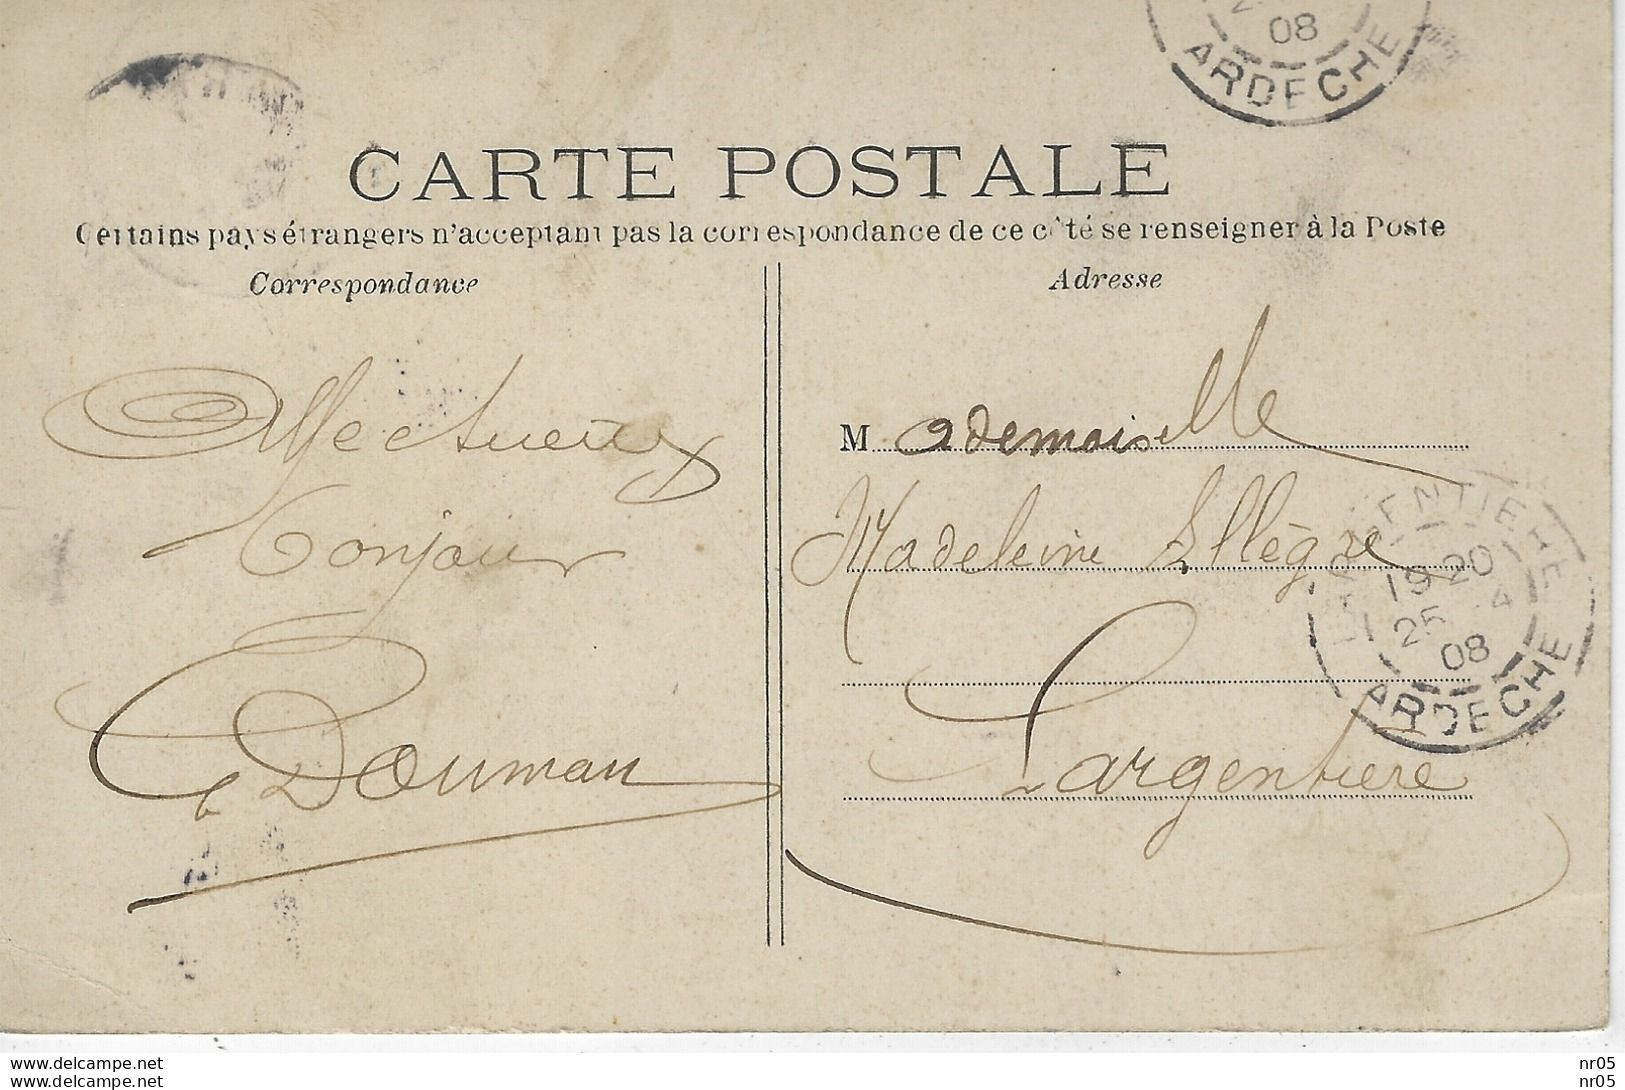 08
ARDECHE
CARTE POSTALE
Certains pays étrangers n'acceptant pas la correspondance de ce côté se renseigner à la Poste
Correspondance
Adresse
Affectueux
Bonjour
Doumau
Mademoiselle
Madeleine Allègre
Largentiere
LARGENTIERE
19 20
25 4
08
ARDECHE
www.delcampe.net
www.delcampe.net
nr05
nr05